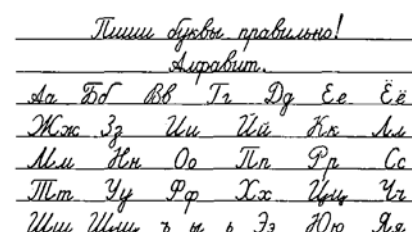 Пиши буквы правильно!
Алфавит.
Аа Бб Вв Гг Дд Ее Ёё
Жж Зз Ии Йй Кк Лл
Мм Нн Оо Пп Рр Сс
Тт Уу Фф Хх Цц Чч
Шш Щщ ъ ы ь Ээ Юю Яя